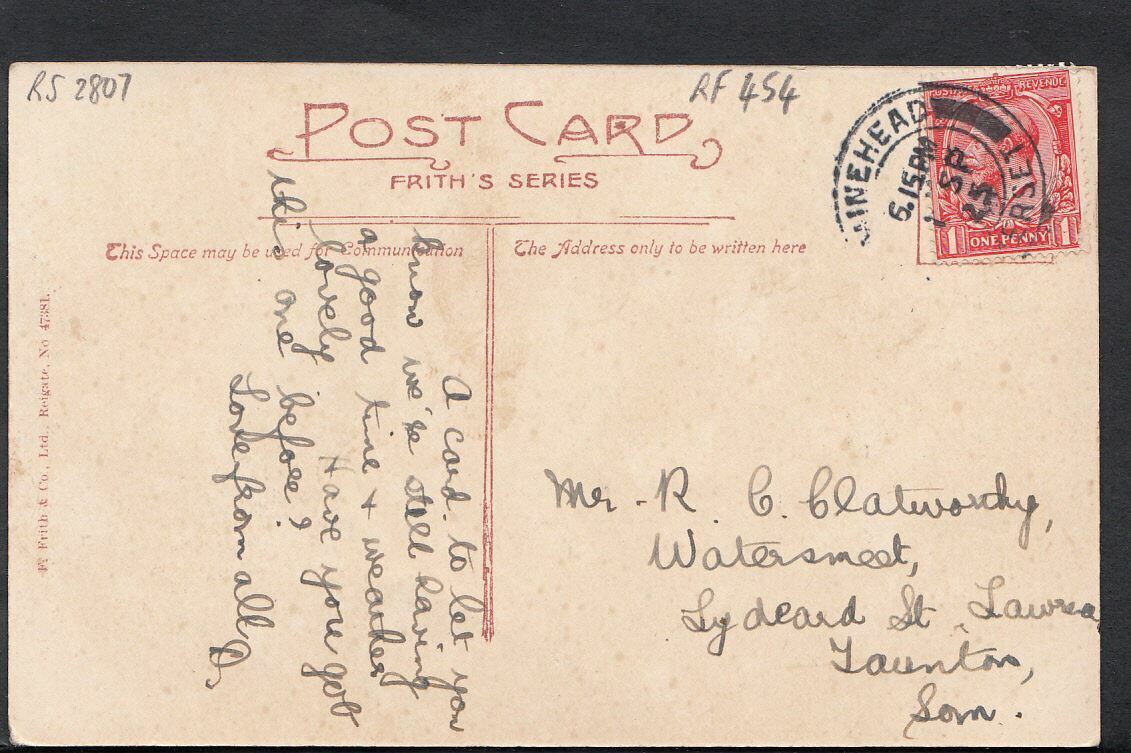 RS 2807
RF 454
POST CARD
FRITH'S SERIES
This Space may be used for Communication
The Address only to be written here
F. Frith & Co., Ltd., Reigate. No 47381.
A card to let you
know we're still having
a good time + weather
lovely Have you got
this one before?
Love from all
D.
Mr. R. C. Clatworthy,
Watersmeet,
Lydeard St. Lawre
Taunton,
Som.
INEHEAD
6.15PM
SP
25
RSET
POSTAGE REVENUE
1 ONE PENNY 1